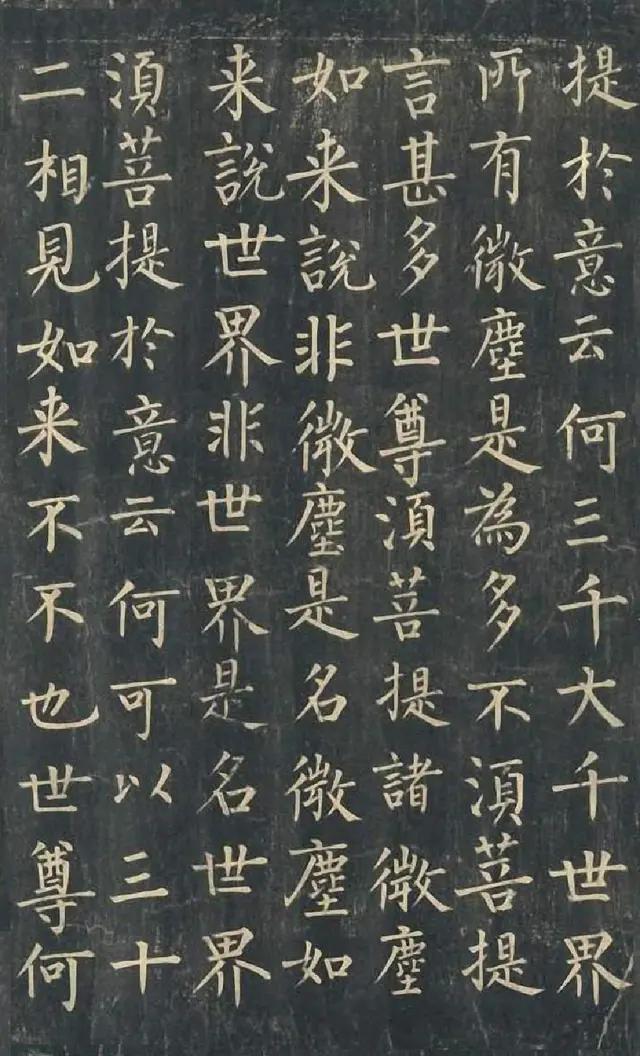 提於意云何三千大千世界
所有微塵是為多不須菩提
言甚多世尊須菩提諸微塵
如来說非微塵是名微塵如
来說世界非世界是名世界
須菩提於意云何可以三十
二相見如来不不也世尊何